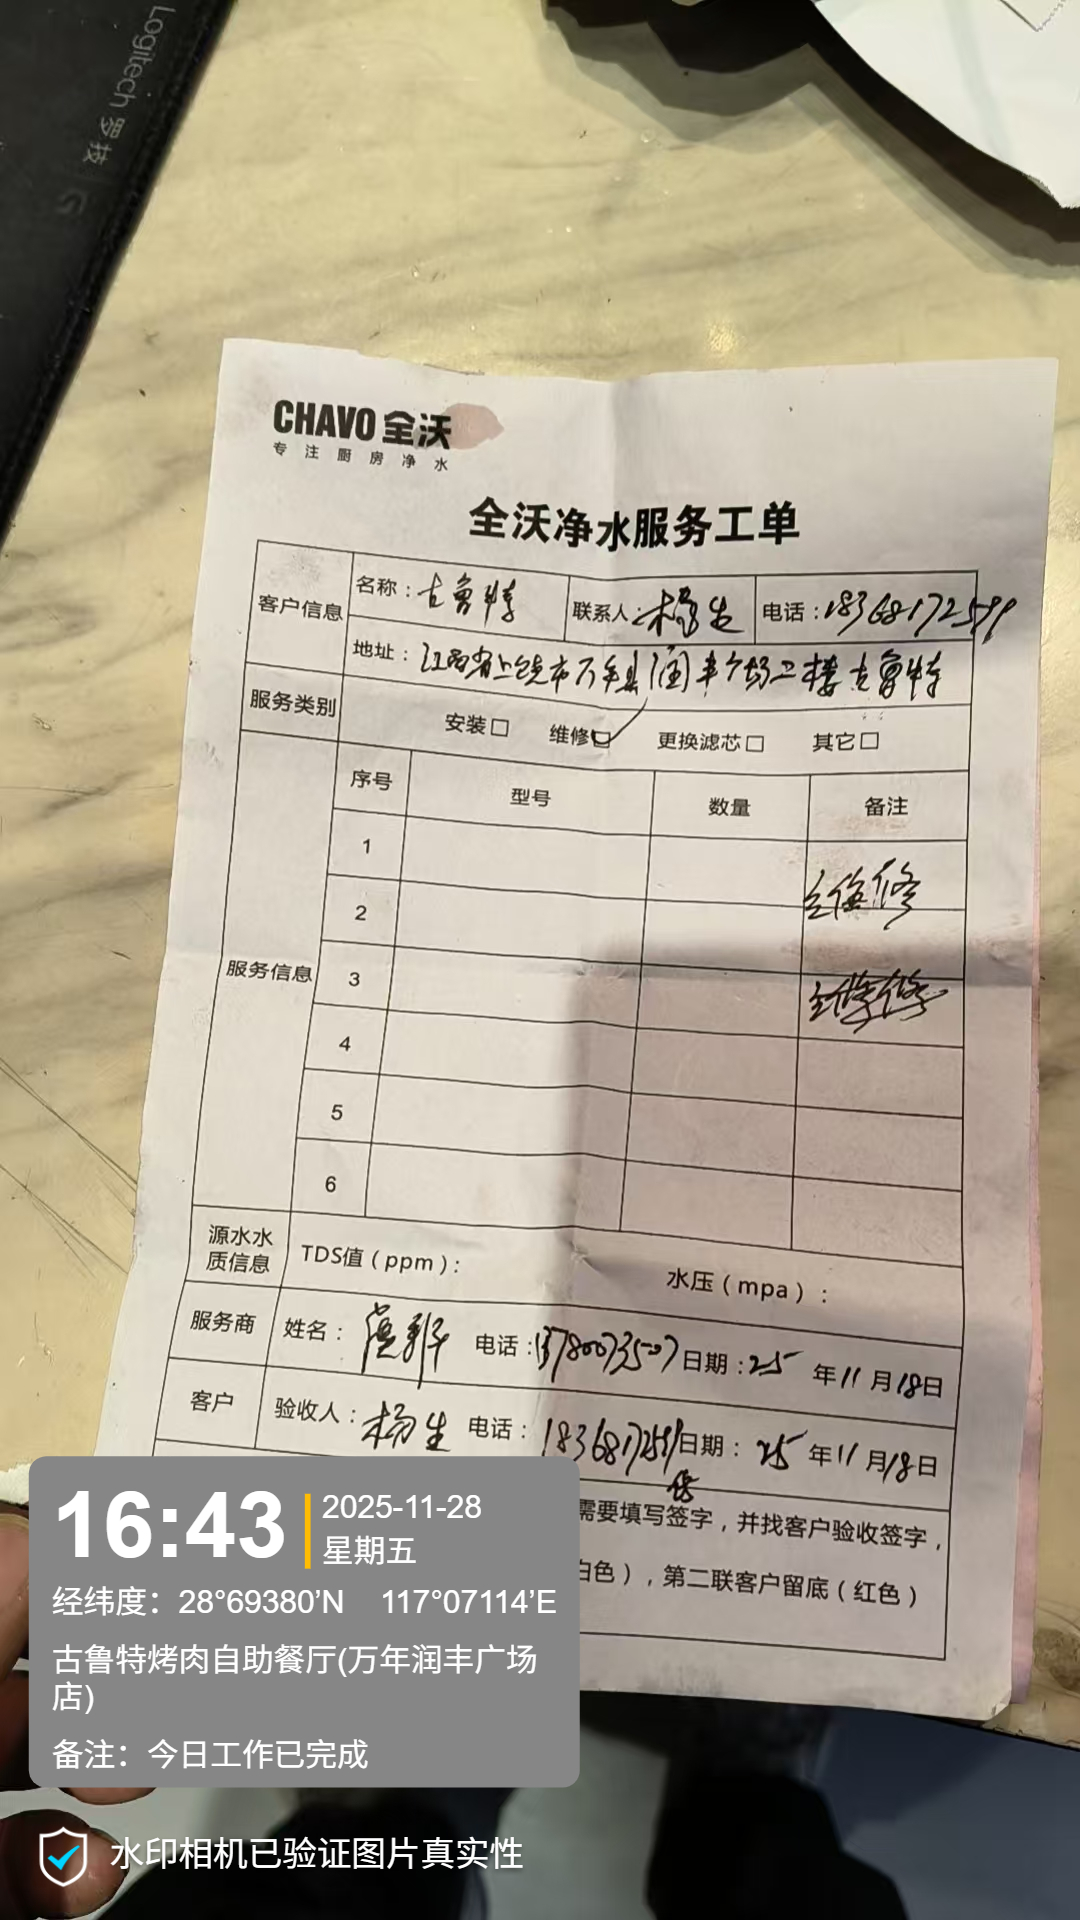 Logitech 罗技 G
CHAVO 全沃
专注厨房净水
全沃净水服务工单
客户信息 名称：古鲁特 联系人：杨生 电话：18368172599
地址：江西省上饶市万年县润丰广场二楼古鲁特
服务类别 安装□ 维修☑ 更换滤芯□ 其它□
服务信息 序号 型号 数量 备注
1
维修
2
3
4
5
6
源水水质信息 TDS值（ppm）： 水压（mpa）：
服务商 姓名： 电话：13780073507 日期：25年11月18日
客户 验收人：杨生 电话：18368172599 日期：25年11月18日
需要填写签字，并找客户验收签字，
白色），第二联客户留底（红色）
16:43
2025-11-28
星期五
经纬度：28°69380’N 117°07114’E
古鲁特烤肉自助餐厅(万年润丰广场
店)
备注：今日工作已完成
水印相机已验证图片真实性